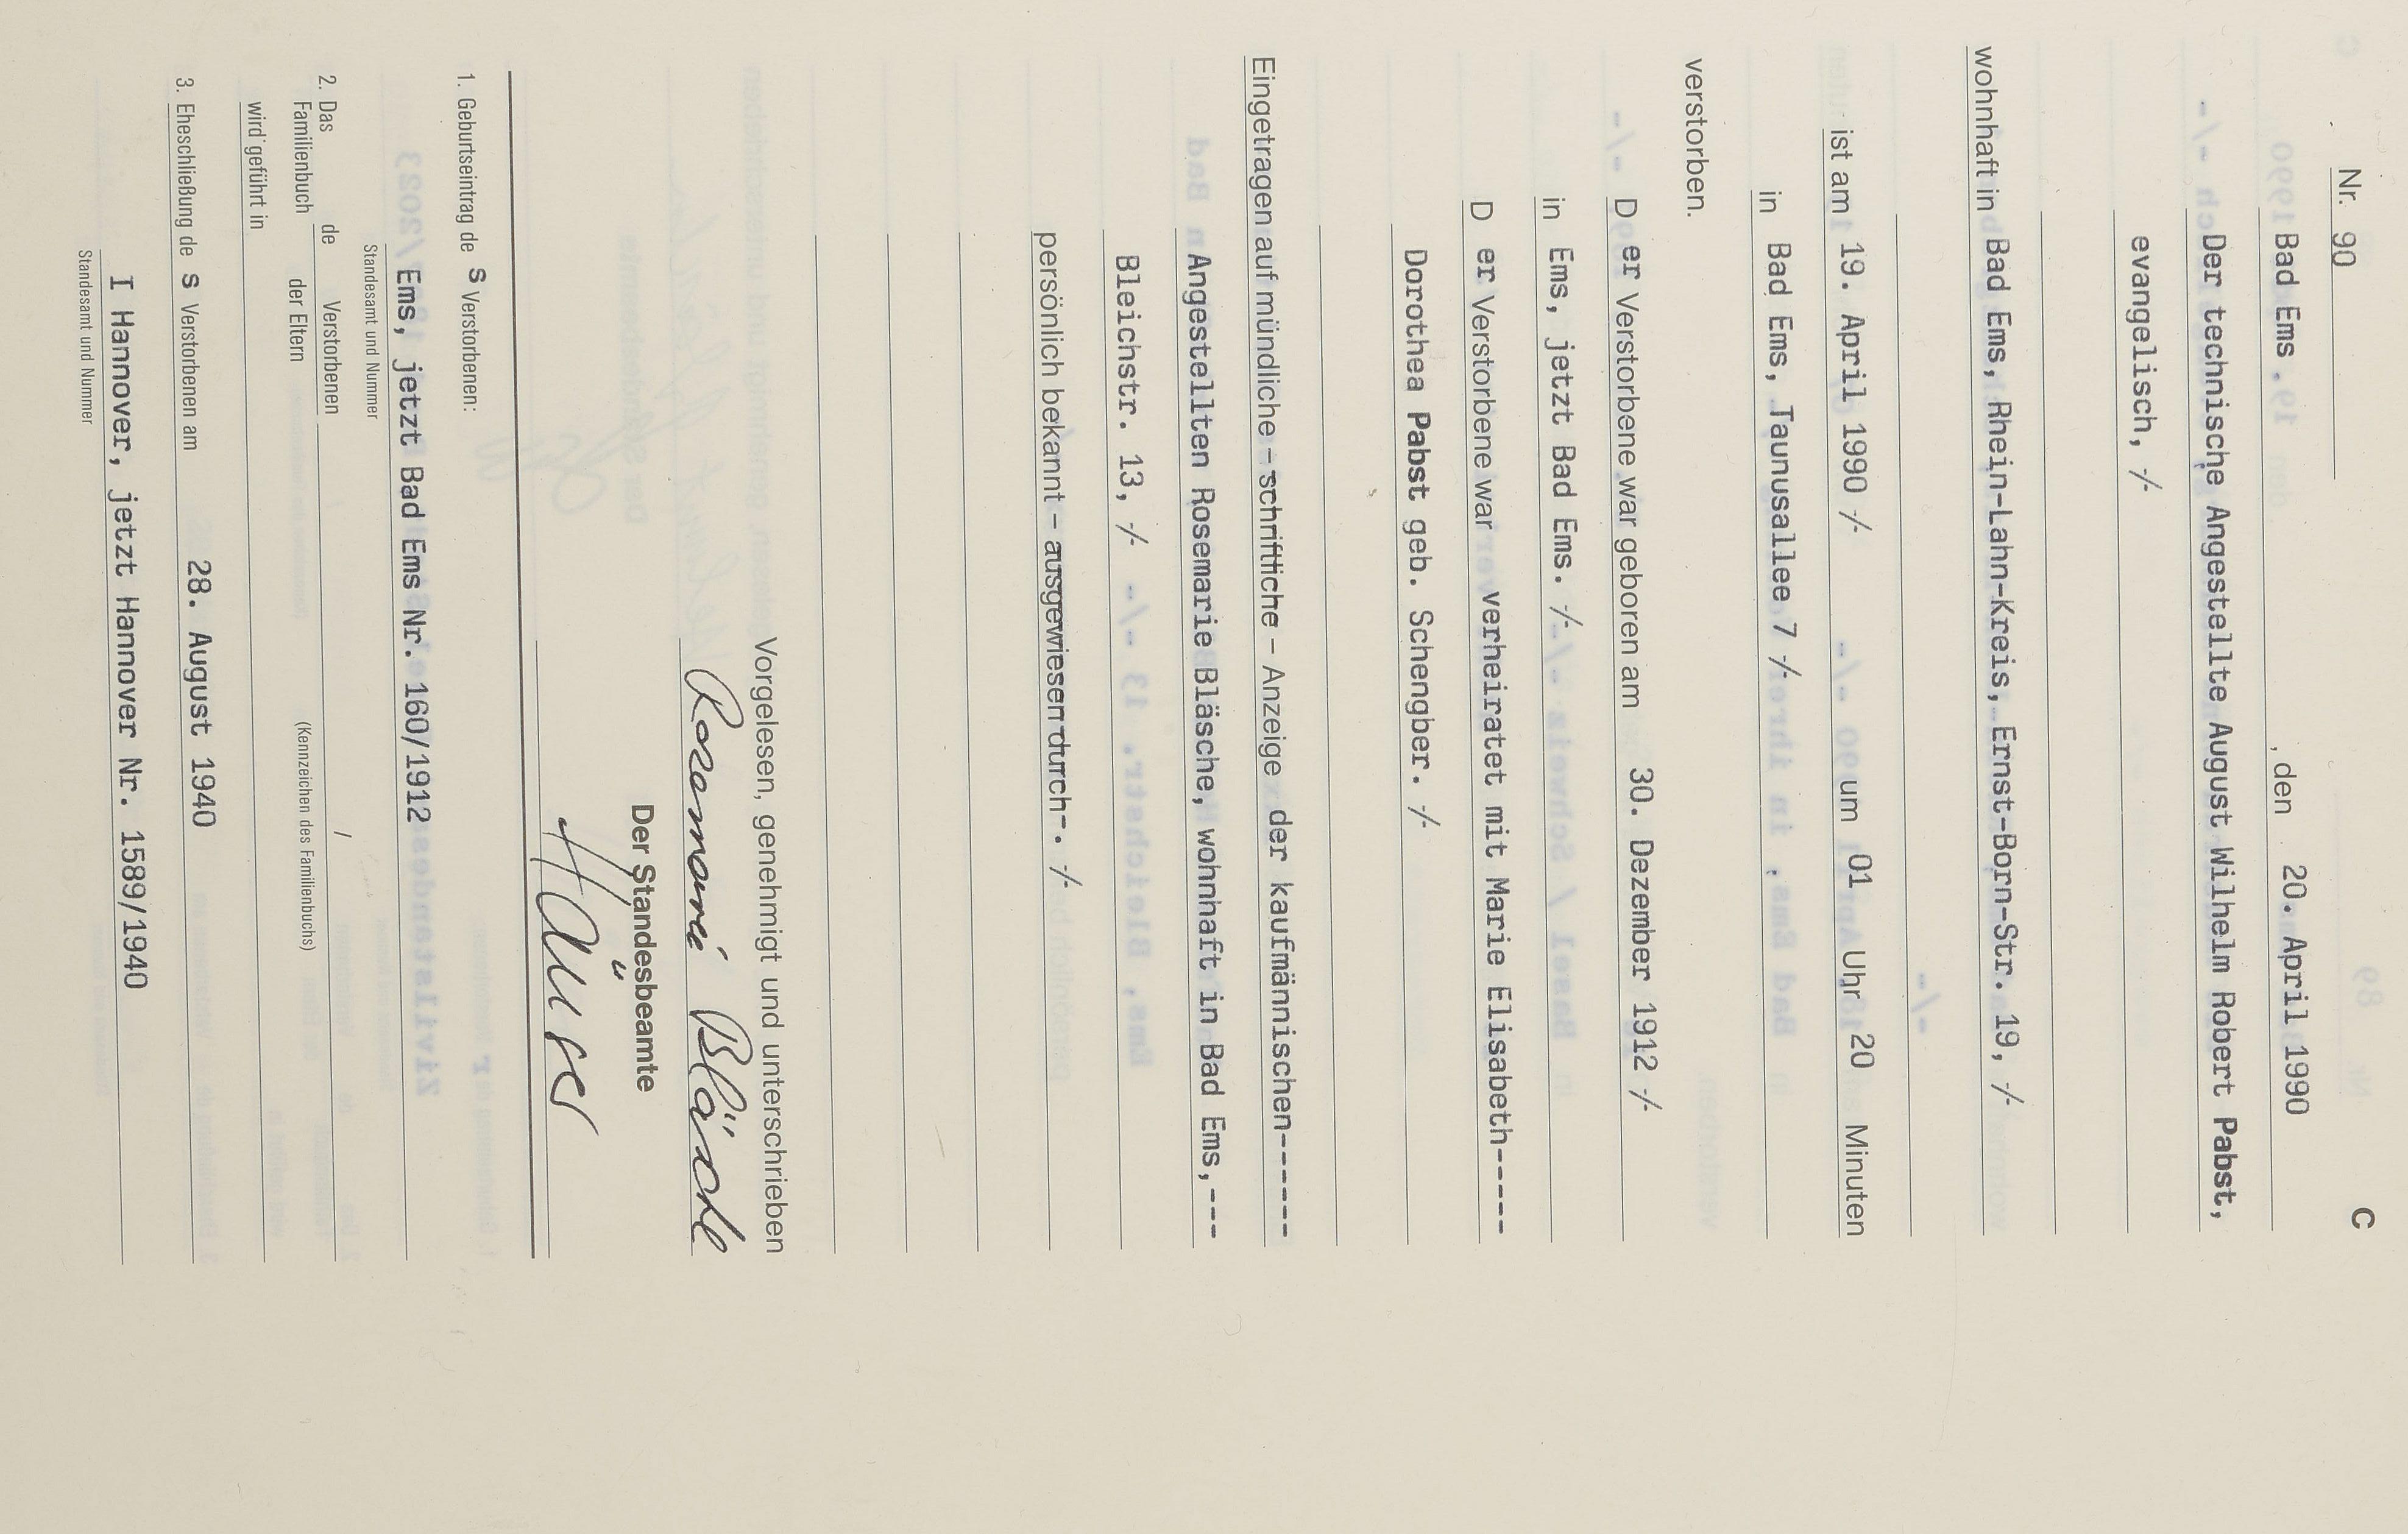 C
Nr. 90
Bad Ems, den 20. April 1990
Der technische Angestellte August Wilhelm Robert Pabst,
evangelisch, -/-
wohnhaft in Bad Ems, Rhein-Lahn-Kreis, Ernst-Born-Str. 19, -/-
ist am 19. April 1990 -/- um 01 Uhr 20 Minuten
in Bad Ems, Taunusallee 7 -/-
verstorben.
D er Verstorbene war geboren am 30. Dezember 1912 -/-
in Ems, jetzt Bad Ems. -/-
D er Verstorbene war verheiratet mit Marie Elisabeth-----
Dorothea Pabst geb. Schengber. -/-
Eingetragen auf mündliche – schriftliche – Anzeige der kaufmännischen------
Angestellten Rosemarie Bläsche, wohnhaft in Bad Ems,---
Bleichstr. 13, -/-
persönlich bekannt – ausgewiesen durch-. -/-
Vorgelesen, genehmigt und unterschrieben
Rosemarie Bläsche
Der Standesbeamte
Häuser
1. Geburtseintrag de s Verstorbenen:
Ems, jetzt Bad Ems Nr. 160/1912
Standesamt und Nummer
2. Das Familienbuch de Verstorbenen der Eltern /
(Kennzeichen des Familienbuchs)
wird geführt in
3. Eheschließung de s Verstorbenen am 28. August 1940
I Hannover, jetzt Hannover Nr. 1589/1940
Standesamt und Nummer